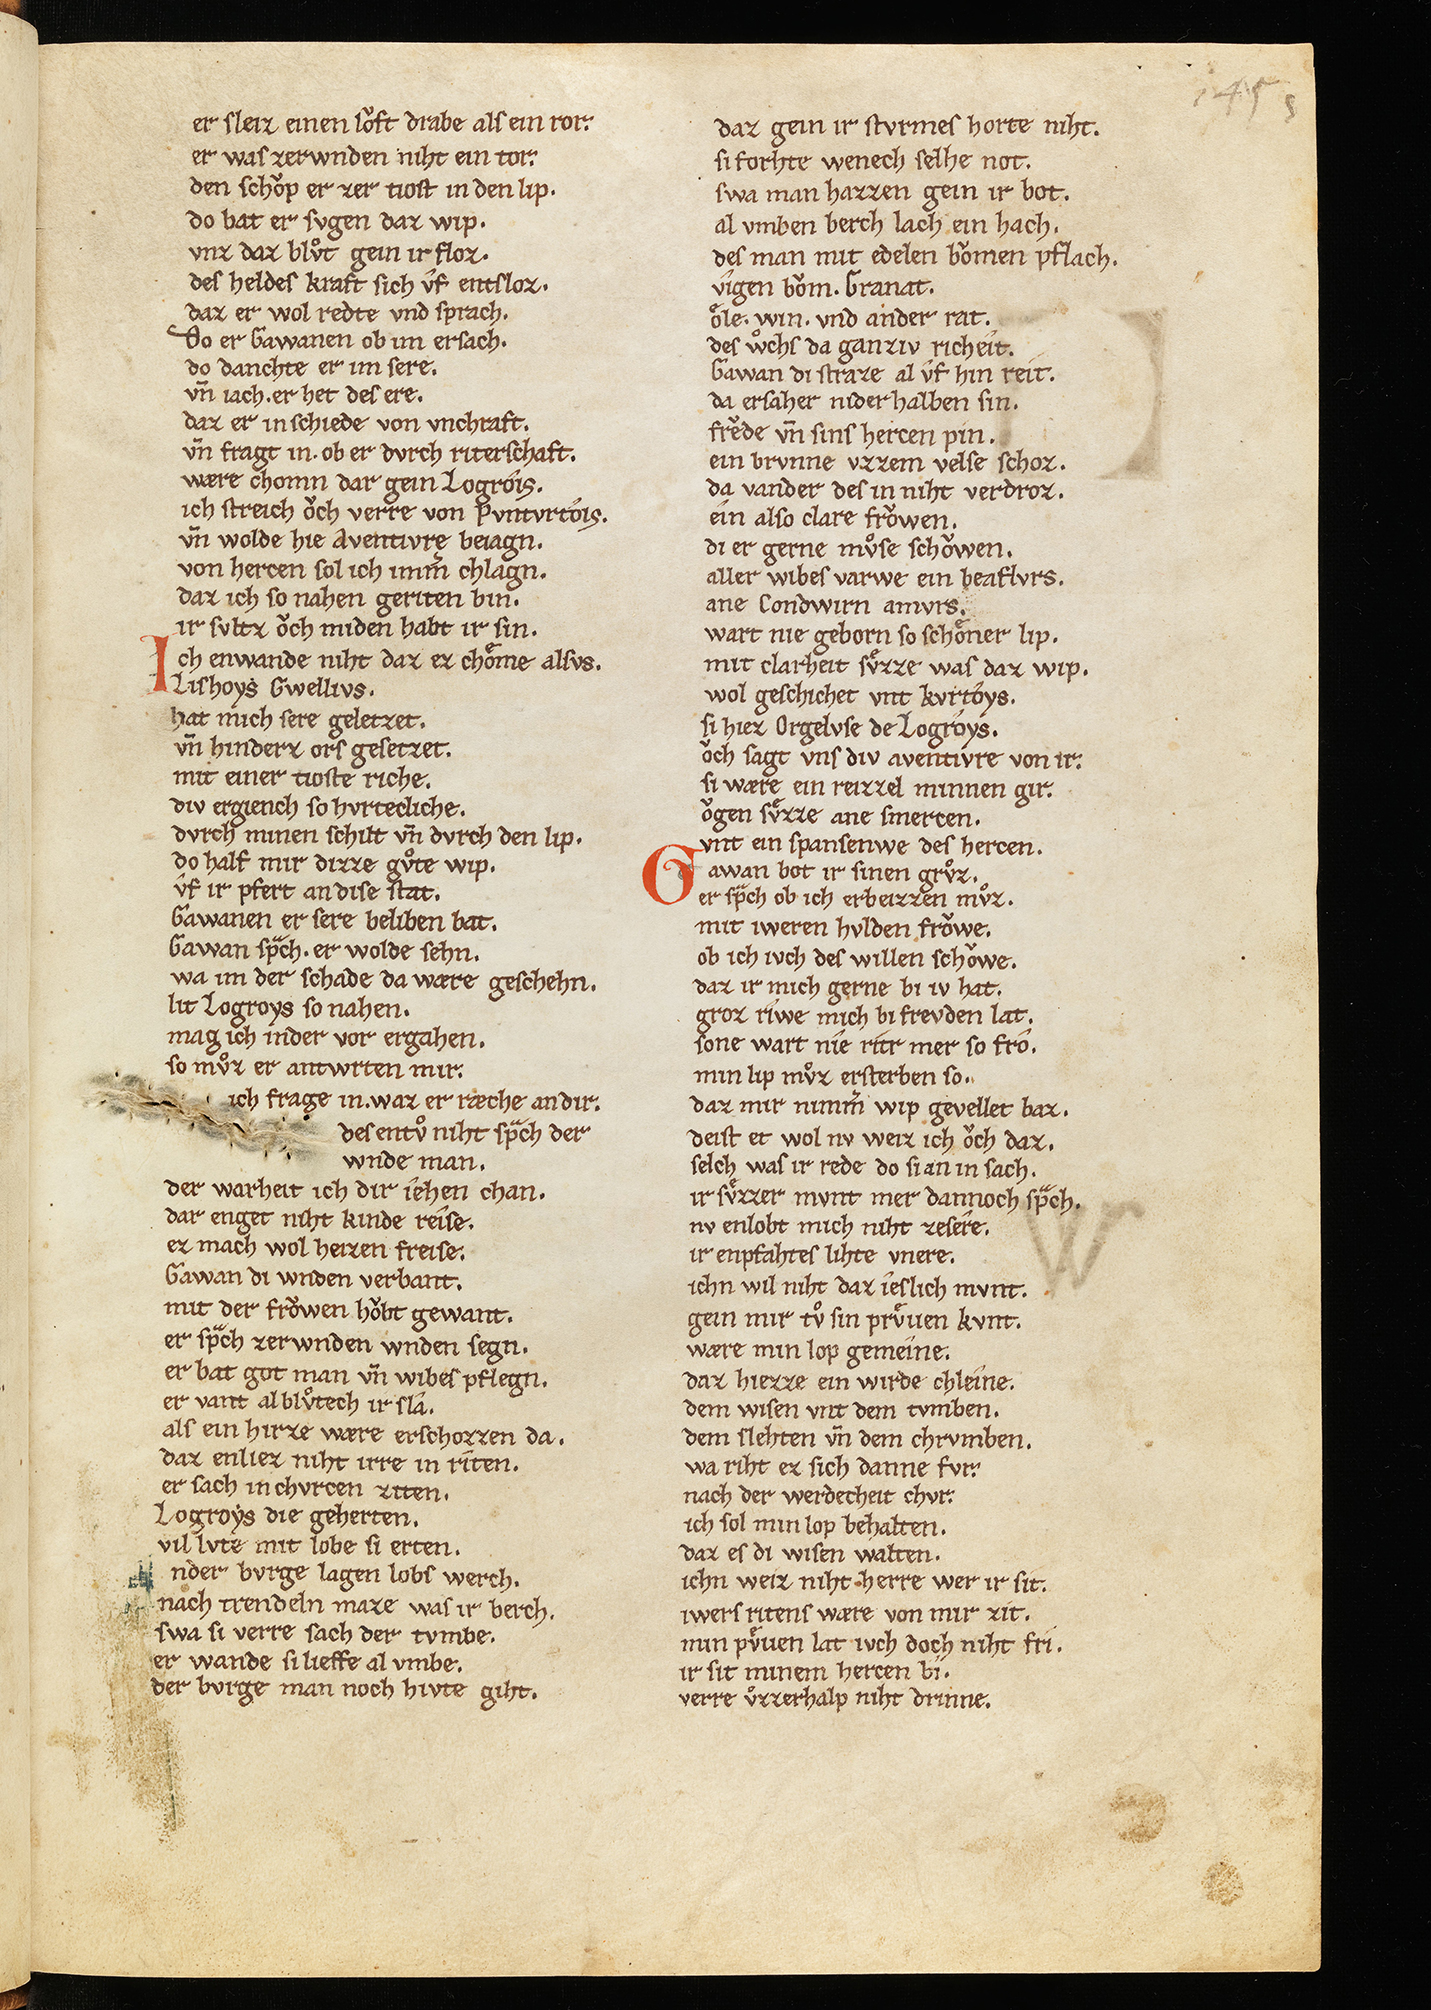 145
5
er sleiz einen soͮft drabe als ein ror.
er was zerwnden niht ein tor.
den schoͮp er zer tiost in den lip.
do bat er svgen daz wip.
vnz daz blvͦt gein ir floz.
des heldes kraft sich vf entsloz.
daz er wol redte vnd sprach.
Do er Gawanen ob im ersach.
do danchte er im sere.
vn̄ iach. er het des ere.
daz er in schiede von vnchraft.
vn̄ fragt in. ob er dvrch riterschaft.
wære chomn dar gein Logrois.
ich streich oͮch verre von Pvntvrtois.
vn̄ wolde hie Aventivre beiagn.
von hercen sol ich imm̄ chlagn.
daz ich so nahen geriten bin.
ir svltz oͮch miden habt ir sin.
Ich enwande niht daz ez choͤme alsvs.
Lishoys Gwellivs.
hat mich sere geletzet.
vn̄ hinderz ors gesetzet.
mit einer tioste riche.
div ergiench so hvrtecliche.
dvrch minen schilt vn̄ dvrch den lip.
do half mir dizze gvͦte wip.
vf ir pfert an dise stat.
Gawanen er sere beliben bat.
Gawan sp̄ch. er wolde sehn.
wa im der schade da wære geschehn.
lit Logroys so nahen.
mag ich inder vor ergahen.
so mvͦz er antwrten mir.
ich frage in. waz er ræche an dir.
des entvͦ niht sp̄ch der
wnde man.
der warheit ich dir iehen chan.
dar enget niht kinde reise.
ez mach wol heizen freise.
Gawan di wnden verbant.
mit der froͮwen hoͮbt gewant.
er sp̄ch zerwnden wnden segn.
er bat got man vn̄ wibes pflegn.
er vant al blvͦtech ir sla.
als ein hirze wære erschozzen da.
daz enliez niht irre in riten.
er sach in chvrcen ziten.
Logroys die geherten.
vil lvte mit lobe si erten.
nder bvrge lagen lobs werch.
nach trendeln maze was ir berch.
swa si verre sach der tvmbe.
er wande si lieffe al vmbe.
der bvrge man noch hivte giht.
daz gein ir stvrmes horte niht.
si forhte wenech selhe not.
swa man hazzen gein ir bot.
al vmben berch lach ein hach.
des man mit edelen boͮmen pflach.
vigen boͮm. Granat.
oͤle. win. vnd ander rat.
des woͮchs da ganziv richeit.
Gawan di straze al vf hin reit.
da ersaher niderhalben sin.
froͤde vn̄ sins hercen pin.
ein brvnne vzzem velse schoz.
da vander des in niht verdroz.
ein also clare froͮwen.
di er gerne mvͦse schoͮwen.
aller wibes varwe ein beaflvrs.
ane Condwirn amvrs.
wart nie geborn so schoͤner lip.
mit clarheit svͤzze was daz wip.
wol geschichet vnt kvrtoys.
si hiez Orgelvse de Logroys.
oͮch sagt vns div aventivre von ir.
si wære ein reizzel minnen gir.
oͮgen svͤzze ane smercen.
vnt ein spansenwe des hercen.
Gawan bot ir sinen grvͦz.
er sp̄ch ob ich erbeizzen mvͦz.
mit iweren hvlden froͮwe.
ob ich ivch des willen schoͮwe.
daz ir mich gerne bi iv hat.
groz riwe mich bi frevden lat.
sone wart nie ritr mer so fro.
min lip mvͦz ersterben so.
daz mir nimm̄ wip gevellet baz.
deist et wol nv weiz ich oͮch daz.
selch was ir rede do si an in sach.
ir svͤzzer mvnt mer dannoch sp̄ch.
nv enlobt mich niht zesere.
ir enpfahtes lihte vnere.
ichn wil niht daz ieslich mvnt.
gein mir tvͦ sin prvͤuen kvnt.
wære min lop gemeine.
daz hiezze ein wirde chleine.
dem wisen vnt dem tvmben.
dem slehten vn̄ dem chrvmben.
wa riht ez sich danne fvr.
nach der werdecheit chvr.
ich sol min lop behalten.
daz es di wisen walten.
ichn weiz niht herre wer ir sit.
iwers ritens wære von mir zit.
min pvͤuen lat ivch doch niht fri.
ir sit minem hercen bi.
verre vͦzzerhalp niht drinne.